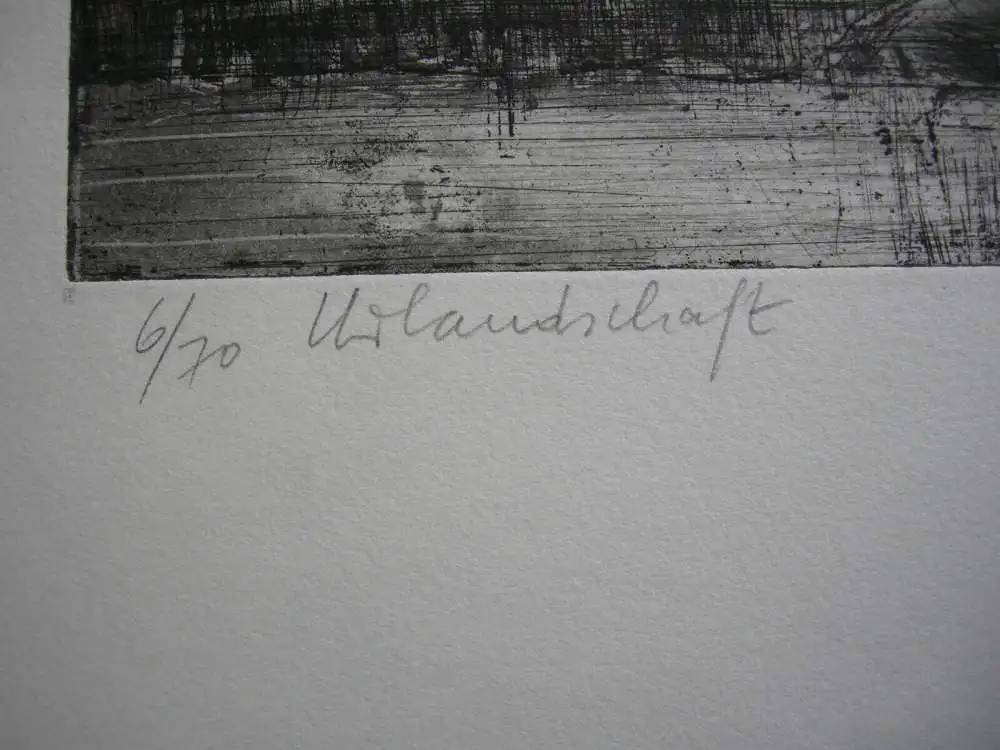 6/70 Urlandschaft